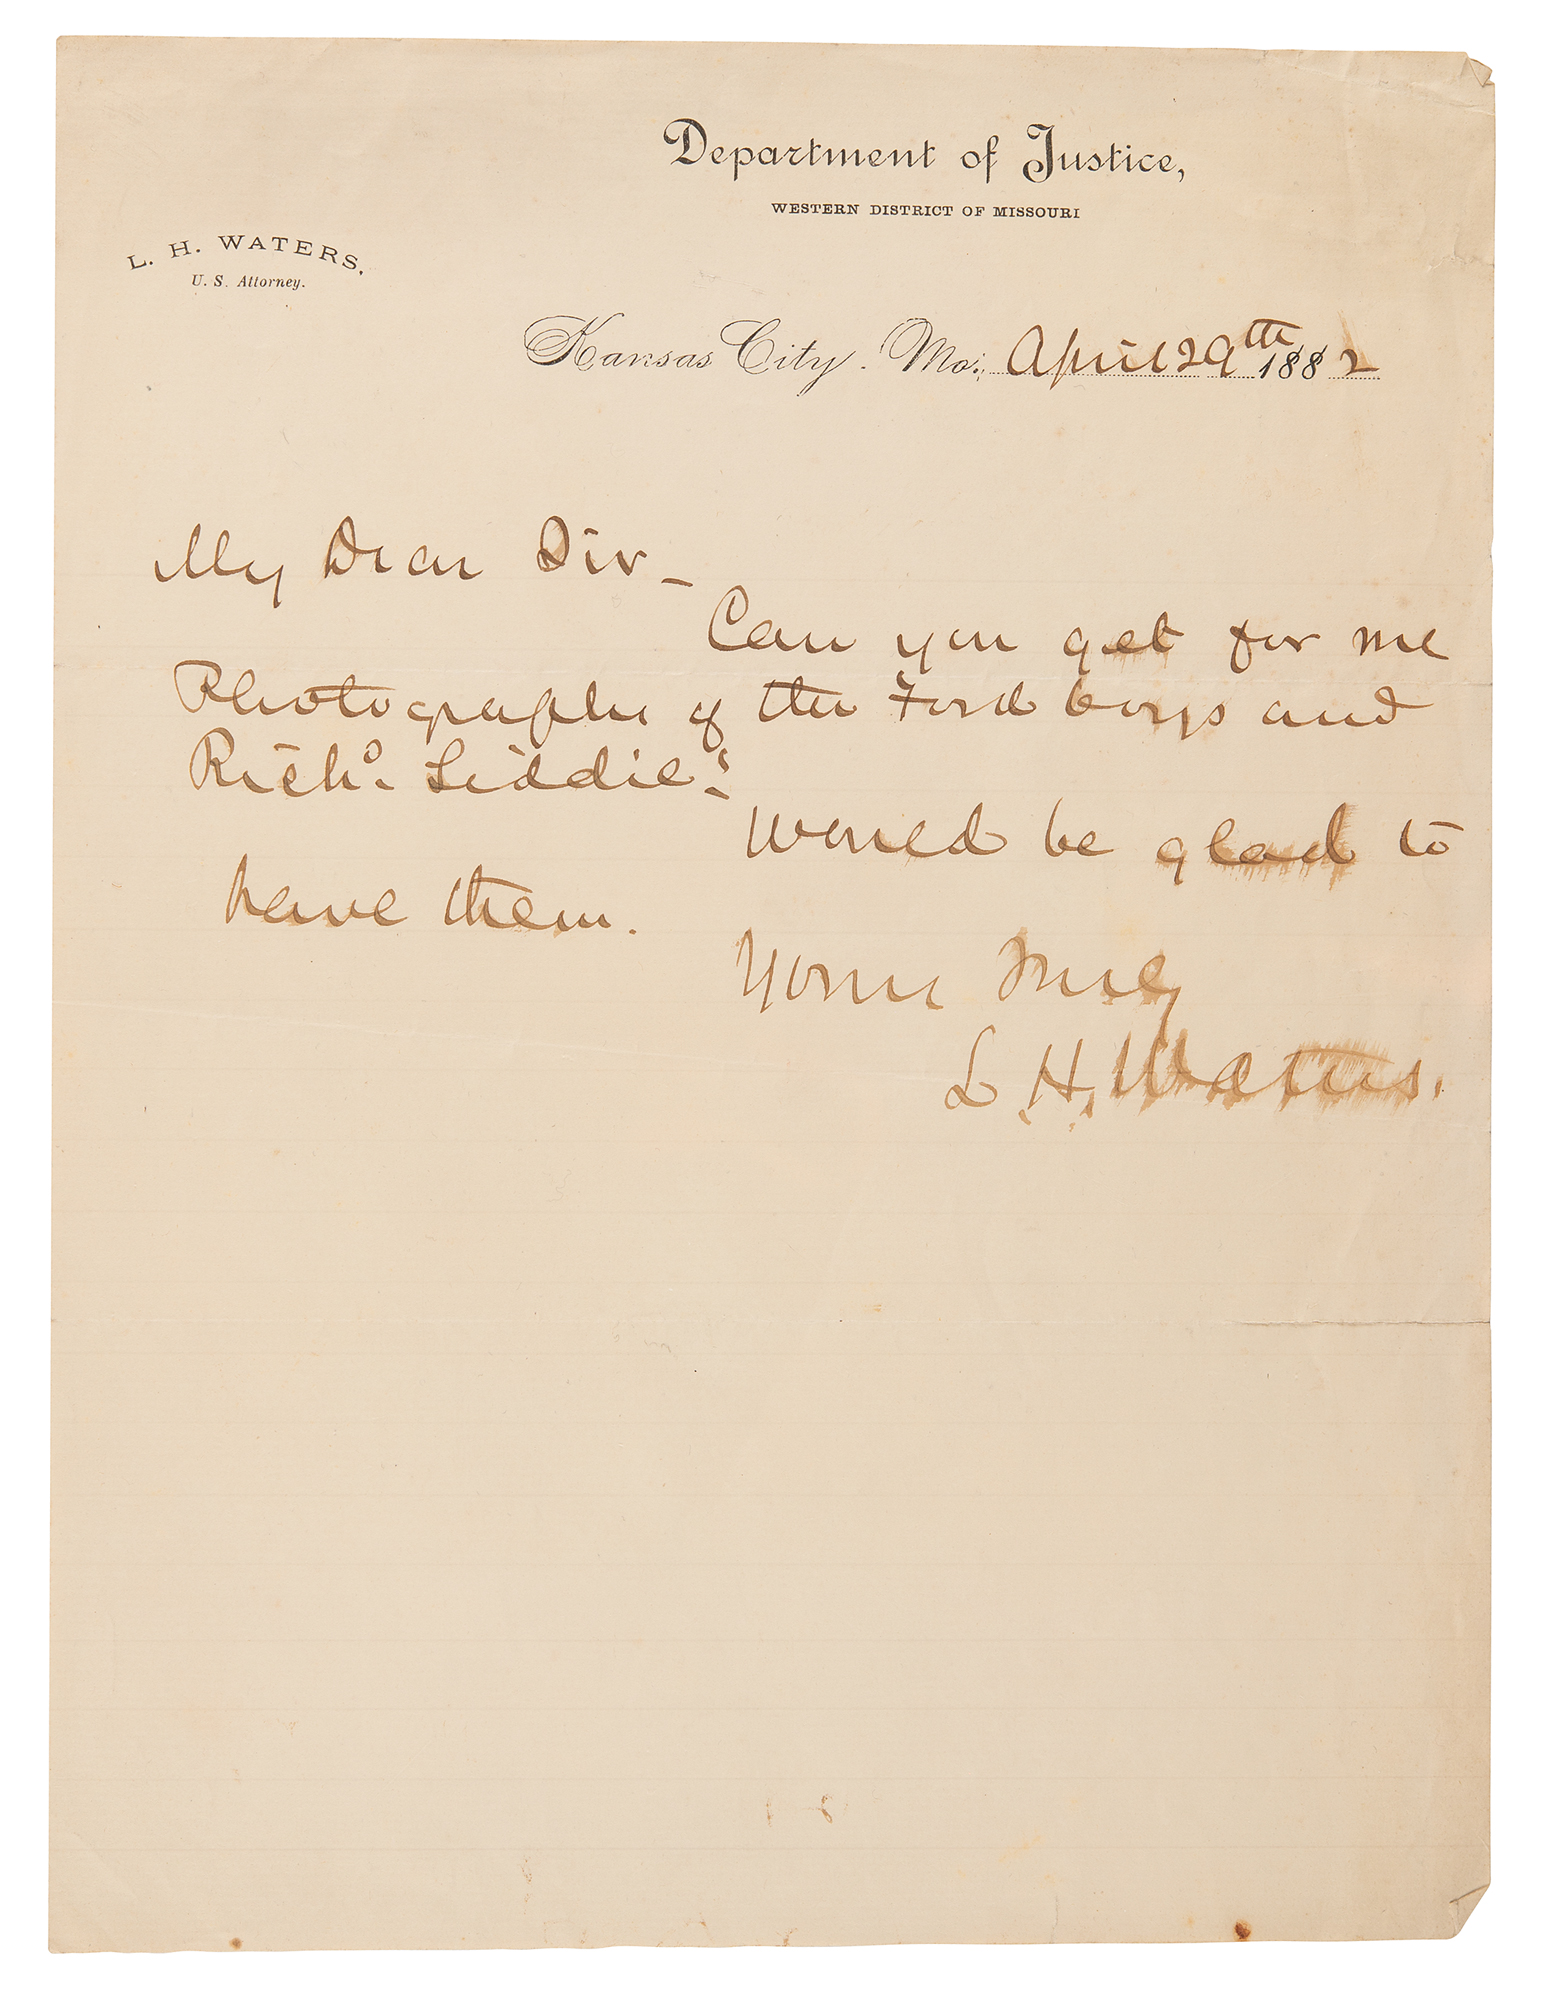 Department of Justice,
WESTERN DISTRICT OF MISSOURI
L. H. WATERS,
U. S. Attorney.
Kansas City. Mo; April 29th 1882
My Dear Sir –
Can you get for me
Photographs of the Ford boys and
Richd. Liddie?
Would be glad to
have them.
Yours Truly
L. H. Waters.